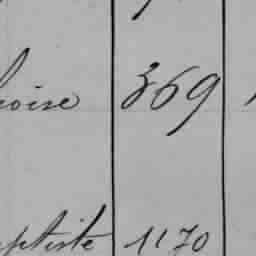 oise 369
ptiste 1170